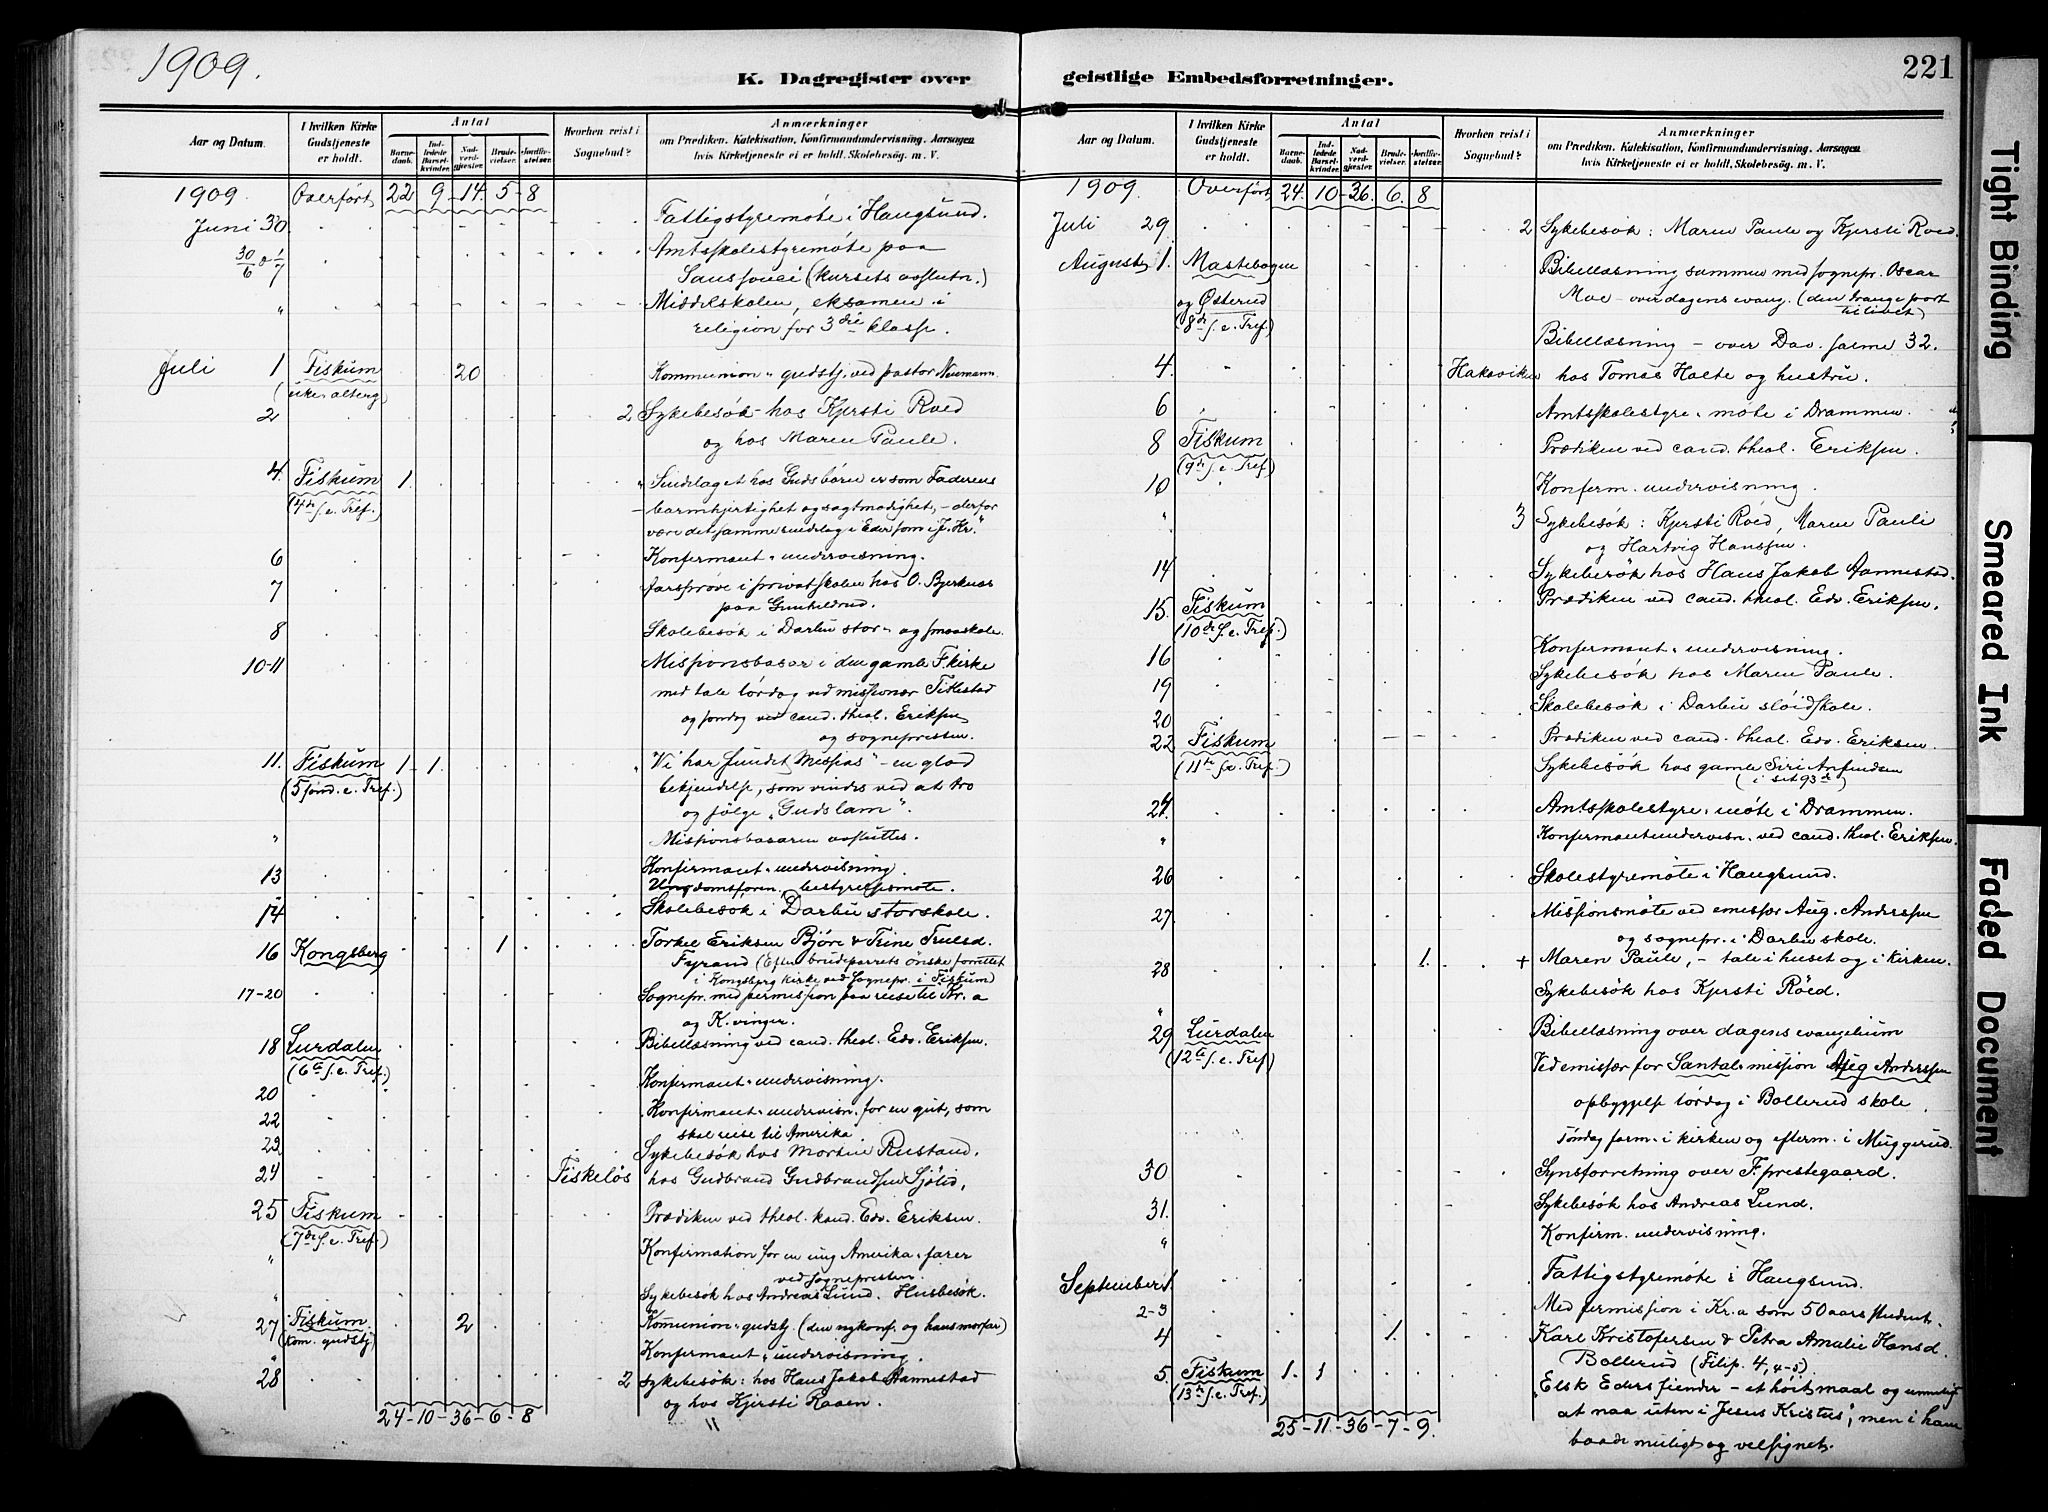 1909.
K. Dagregister over
Aar og Datum.
I hvilken Kirke Gudstjeneste er holdt.
Antal
Barnedaab.
Indledede Barselkvinder.
Nadverdgjester.
Brudevielser.
Jordfæstelser.
Hvorhen reist i Sognebud?
Anmærkninger
om Prædiken, Katekisation, Konfirmandundervisning, Aarsagen
hvis Kirketjeneste ei er holdt, Skolebesøg. m. V.
1909 Overført 22 9 14 5 8
Juni 30 Fattigstyremöte i Haugsund.
30/6 o 1/7 Amtsskolestyremöte paa
Sansfouci (kursets avslutn.)
" Middelskolen, eksamen i
religion for 3die klasse.
Juli 1 Fiskum 20 Kommunion - gudstj. ved pastor Neumann.
2 2 Sykebesök - hos Kjersti Roed
og hos Maren Paule.
4. Fiskum 1. "Sindelaget hos Guds börn er som Faderens
(4de s. e. Tref.) - barmhjertighet og sagtmodighet, - derfor
være det samme sindelag i Eder som i J. Kr."
6 Konfirmant - undervisning.
7 Aarspröve i privatskolen hos O. Bjerknæs
paa Gunhildrud.
8 Skolebesök i Darbu stor- og smaaskole.
10-11 Missionsbasar i den gamle F. kirke
med tale lördag ved missionær Tiklestad
og söndag ved cand. theol. Eriksen
og sognepresten.
11. Fiskum 1 1 "Vi har fundet Messias" - en glad
(5 sönd. e. Tref.) bekjendelse, som vindes ved at tro
og fölge "Guds lam".
" Missionsbasaren avsluttes.
13 Konfirmant - undervisning.
Ungdomsforen. bestyrelsesmöte.
14 Skolebesök i Darbu storskole.
16 Kongsberg 1 Torkel Eriksen Björe & Trine Truelsd.
Fyrand (Efter brudeparrets önske forrettet
i Kongsberg kirke ved Sognepr. i Fiskum)
17-20 Sognepr. med permission paa reise til Kr.a
og K.vinger.
18 Lurdalen Bibellæsning ved cand. theol. Edv. Eriksen.
(6te s. e. Tref.)
20 Konfirmant - undervisning.
22 Konfirmant - undervisn. for en gut, som
skal reise til Amerika.
23 Sykebesök hos Morten Rustand.
24 Fiskelös hos Gudbrand Gudbrandsen Sjölid.
25 Fiskum Prædiken ved theol. kand. Edv. Eriksen.
(7de s. e. Tref.)
" Konfirmation for en ung Amerika - farer
ved sognepresten.
" Sykebesök hos Andreas Lund. Husbesök.
27 Fiskum 2 Kommunion - gudstj. (den nykonf. og hans morfar)
(kom. gudstj)
" Konfirmant - undervisning.
28 2 Sykebesök: hos Hans Jakob Aannestad
og hos Kjersti Raaen.
24 - 10 - 36 - 6 - 8
geistlige Embedsforretninger.
221
Aar og Datum.
I hvilken Kirke Gudstjeneste er holdt.
Antal
Barnedaab.
Indledede Barselkvinder.
Nadverdgjester.
Brudevielser.
Jordfæstelser.
Hvorhen reist i Sognebud?
Anmærkninger
om Prædiken, Katekisation, Konfirmandundervisning, Aarsagen
hvis Kirketjeneste ei er holdt, Skolebesøg. m. V.
1909 Overført 24 10 36 6 8
Juli 29 2 Sykebesök: Maren Paule og Kjersti Roed.
August 1. Mastebogen Bibellæsning sammen med sognepr. Oscar
og Österud Moe - over dagens evang. (den trange port
(8de s. e. Tref.) til livet)
Bibellæsning - over Dav. salme 32.
4. Hakaviken hos Tomas Holte og hustru.
6 Amtsskolestyre - möte i Drammen.
8 Fiskum Prædiken ved cand. theol. Eriksen.
(9de s. e. Tref.)
10 Konferm. undervisning.
" 3 Sykebesök: Kjersti Röed, Maren Pauli
og Hartvig Hanssen.
14 Sykebesök hos Hans Jakob Aannestad.
15 Fiskum Prædiken ved cand. theol. Edv. Eriksen.
(10de s. e. Tref.)
16 Konfermant - undervisning.
19 Sykebesök hos Maren Paule.
20 Skolebesök i Darbu slöidskole.
22 Fiskum Prædiken ved cand. theol. Edv. Eriksen.
(11te s. e. Tref.) Sykebesök hos gamle Siri Anfindsen
(i sit 93de)
24. Amtsskolestyre - möte i Drammen.
" Konfermantundervisn. ved cand. theol. Eriksen.
26 Skolestyremöte i Haugsund.
27 Missionsmöte ved emissær Aug. Anderssen
og sognepr. i Darbu skole.
28 1. + Maren Paule, - tale i huset og i kirken.
" Sykebesök hos Kjersti Röed.
29 Lurdalen Bibellæsning over dagens evangelium
(12te s. e. Tref) Ved emissær for Santal - mission Aug Anderssen
opbyggelse lördag i Bollerud skole,
söndag form. i kirken og efterm. i Muggerud.
30 Synsforretning over F. prestegaard.
31. Sykebesök hos Andreas Lund.
" Konferm. undervisning.
September 1. Fattigstyremöte i Haugsund.
2-3 Med permission i Kr.a som 50 aars student.
4 1. Karl Kristofersen & Petra Amalie Hansd.
Bollerud (Filip. 4, 4-5)
5. Fiskum 1. 1 "Elsk Eders fiender - et höit maal og umuligt
(13de s. e. Tref.) at naa uten i Jesus Kristus", men i ham
baade muligt og velsignet.
25 - 11 - 36 - 7 - 9.
Tight Binding
Smeared Ink
Faded Document